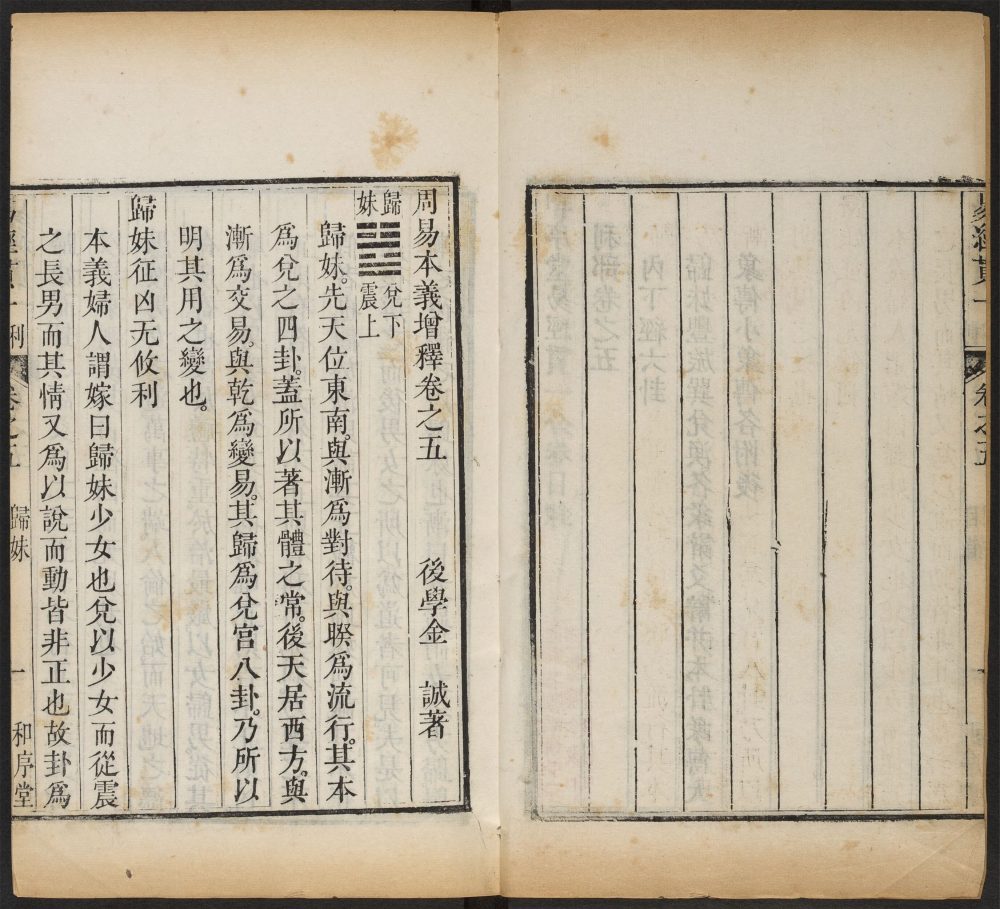 易經貫一
卷之五
一
周易本義增釋卷之五 後學金 誠著
歸妹 兌下震上
歸妹。先天位東南。與漸爲對待。與睽爲流行。其本
爲兌之四卦。蓋所以著其體之常。後天居西方。與
漸爲交易。與乾爲變易。其歸爲兌宮八卦。乃所以
明其用之變也。
歸妹征凶无攸利
本義婦人謂嫁曰歸妹少女也兌以少女而從震
之長男而其情又爲以說而動皆非正也故卦爲
易經貫一 利 卷之五 歸妹 一 和序堂